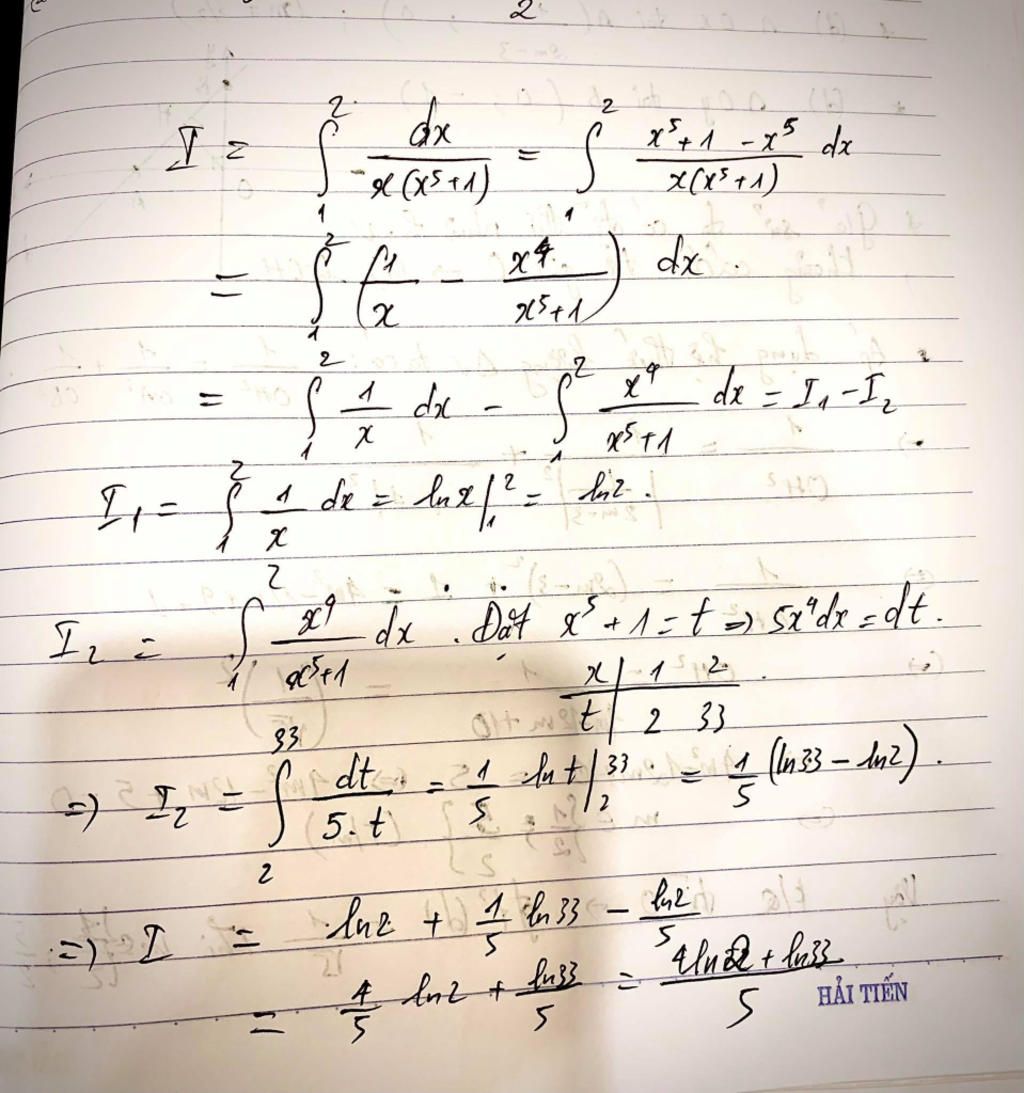 2
I = ∫₁² dx / x(x⁵+1) = ∫₁² (x⁵+1 - x⁵) / x(x⁵+1) dx
= ∫₁² (1/x - x⁴/(x⁵+1)) dx.
= ∫₁² 1/x dx - ∫₁² x⁴/(x⁵+1) dx = I₁ - I₂.
I₁ = ∫₁² 1/x dx = ln x |₁² = ln2.
I₂ = ∫₁² x⁴/(x⁵+1) dx. Đặt x⁵ + 1 = t ⇒ 5x⁴dx = dt.
x | 1 2
t | 2 33
⇒) I₂ = ∫₂³³ dt/(5.t) = 1/5 ln t |₂³³ = 1/5 (ln33 - ln2).
⇒) I = ln2 + 1/5 ln33 - ln2/5
= 4/5 ln2 + ln33/5 = (4ln2 + ln33)/5
HẢI TIẾN